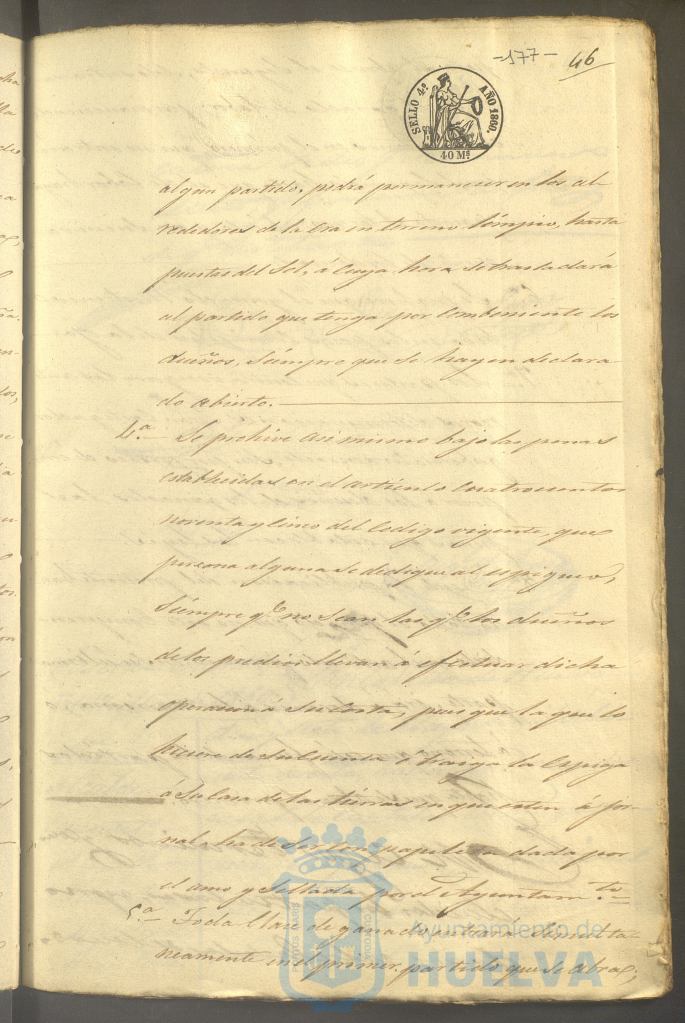 -577- 46
SELLO 4º AÑO 1860.
40 Ms
algun partido, podrá permanecer en los al-
rededores de la Era en terreno límpio, hasta
puestas del Sol, á cuya hora se trasladará
al partido que tenga por combeniente los
dueños, siémpre que se hayen declara
do abierto.
4.ª Se prohive asi mismo bajo las penas
establecidas en el artículo cuatrocientos
noventa y cinco del Codigo vigente, que
persona alguna se dedique al espigueo,
siémpre qe no sean las qe los dueños
de los predios llevan á efectuar dicha
operacion á su costa, pues que la que lo
hiciere de su cuenta ó traiga la espiga
á su casa de las tiérras en que esten á jor-
nal, ha de ser con papeleta dada por
el amo y sellada por el Ayuntam.to
5.ª Toda clase de ganado entrará simulta
neamente en el primer partido que se abra,
PORTUS MARIS ET TERRAE CUSTODIA
Ayuntamiento de
HUELVA